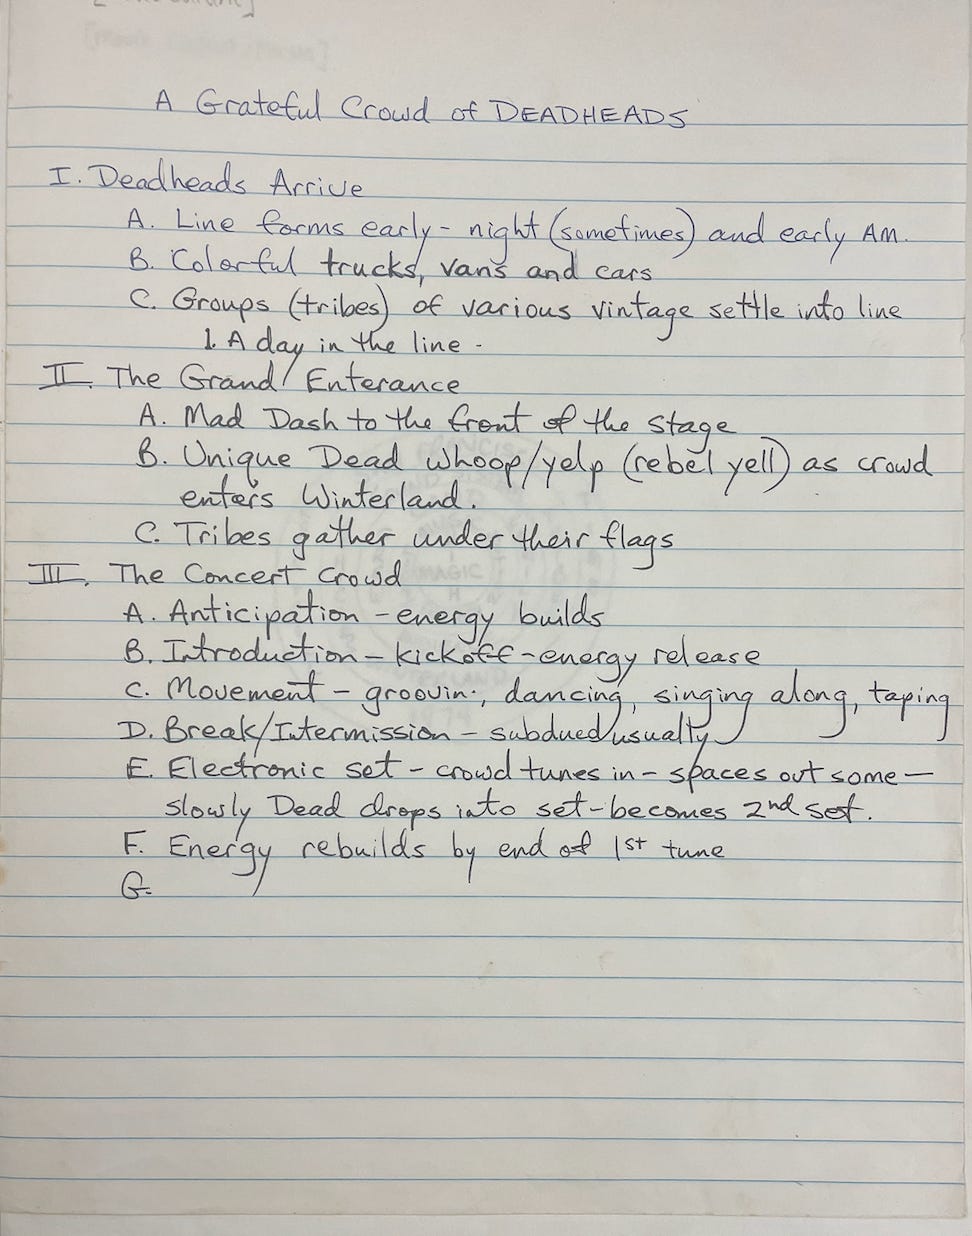 A Grateful Crowd of DEADHEADS
I. Deadheads Arrive
A. Line forms early - night (sometimes) and early AM.
B. Colorful trucks, vans and cars
C. Groups (tribes) of various vintage settle into line
1. A day in the line -
II. The Grand Enterance
A. Mad Dash to the front of the stage
B. Unique Dead whoop/yelp (rebel yell) as crowd
enters Winterland.
C. Tribes gather under their flags
III. The Concert Crowd
A. Anticipation - energy builds
B. Introduction - kickoff - energy release
C. Movement - groovin', dancing, singing along, taping
D. Break/Intermission - subdued usually
E. Electronic set - crowd tunes in - spaces out some -
slowly Dead drops into set - becomes 2nd set.
F. Energy rebuilds by end of 1st tune
G.
MAGIC